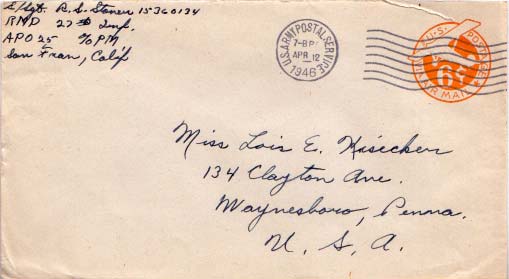 S/Sgt. R. S. Stoner 15360134
27th Inf.
APO 25 % PM
San Fran, Calif
U.S. ARMY POSTAL SERVICE
APR 12
1946
U.S. POSTAGE
6¢
VIA AIR MAIL
Miss Lois E. Kisecker
134 Clayton Ave.
Waynesboro, Penna.
U. S. A.